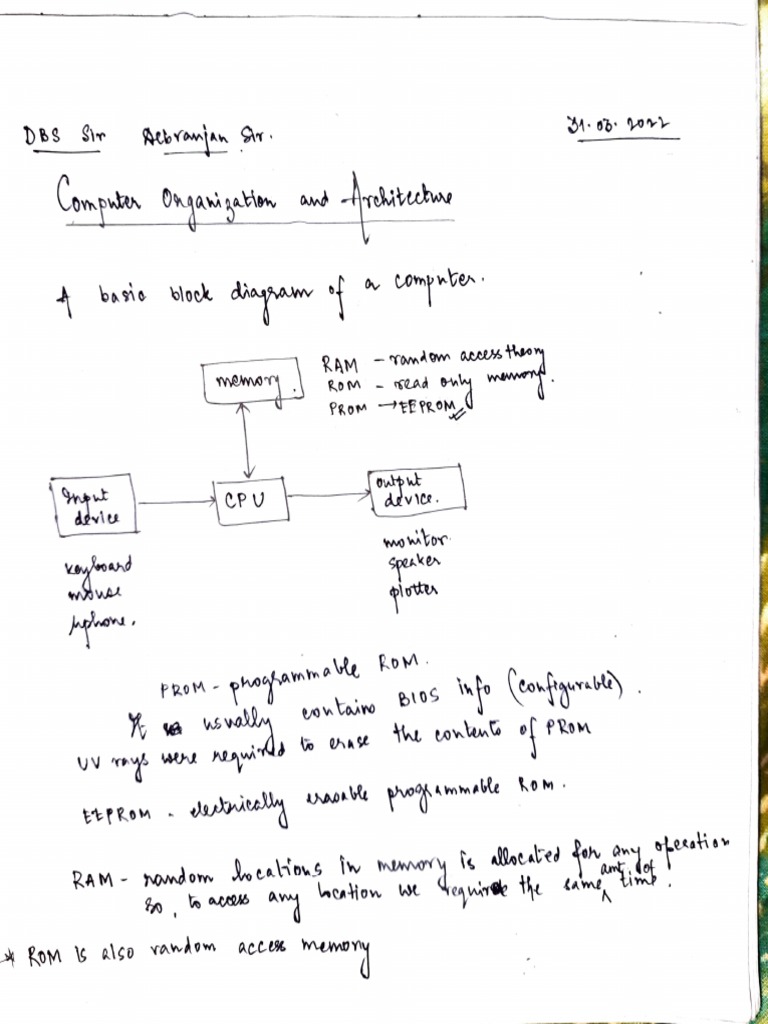 DBS Sir Debranjan Sir.
31.03.2022
Computer Organization and Architecture
A basic block diagram of a computer.
memory.
RAM - random access theory
ROM - read only memory.
PROM → EEPROM
Input device
CPU
output device.
keyboard
mouse
μphone.
monitor.
speaker
plotter
PROM - programmable ROM.
It usually contains BIOS info (configurable).
UV rays were required to erase the contents of PROM
EEPROM - electrically erasable programmable ROM.
RAM - random locations in memory is allocated for any operation
so, to access any location we require the same amt of time.
* ROM is also random access memory